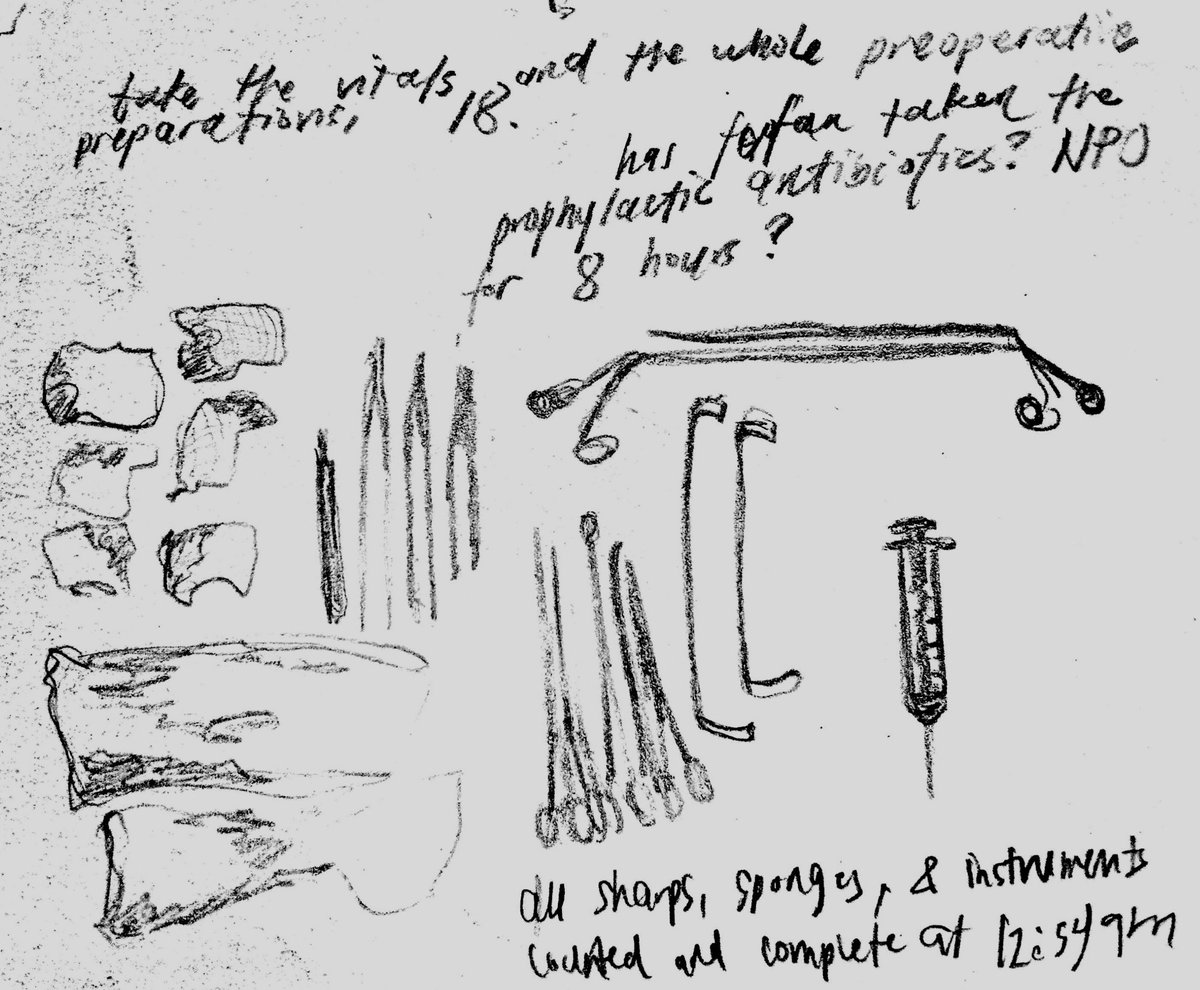 take the vitals, and the whole preoperative
preparations, 18.
has taken the
prophylactic antibiotics? NPO
for 8 hours?
all sharps, sponges, & instruments
counted and complete at 12:54am